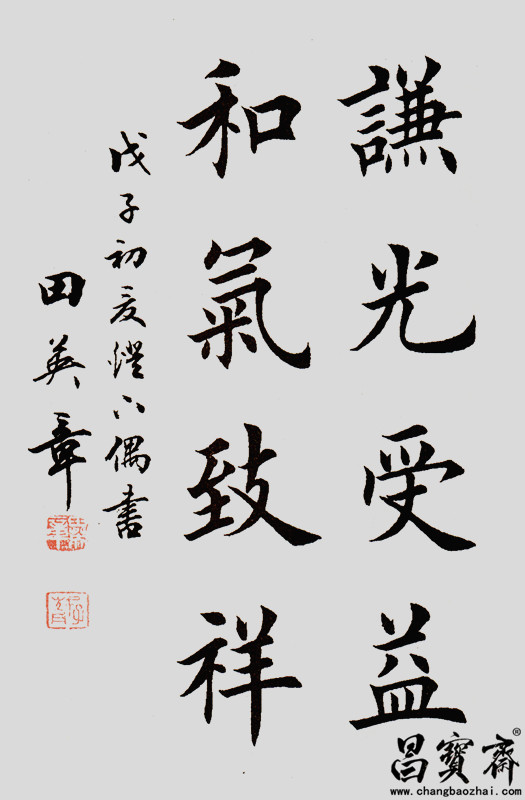 謙光受益
和氣致祥
戊子初夏燈下偶書
田英章
昌寶齋®
www.changbaozhai.com